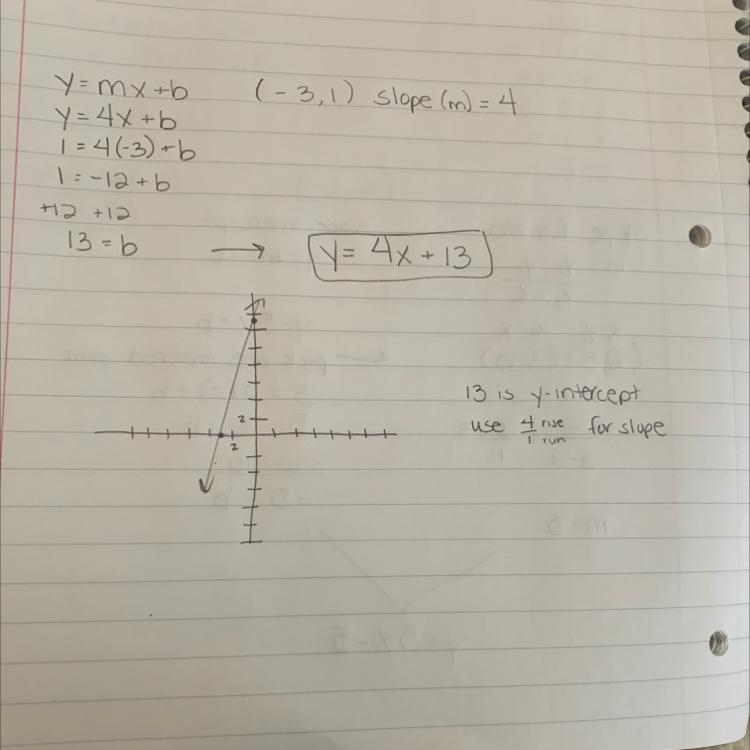 y=mx+b (-3,1) slope(m)=4
y=4x+b
1=4(-3)+b
1=-12+b
+12 +12
13=b → y=4x+13
2
2
13 is y-intercept
use 4/1 rise/run for slope